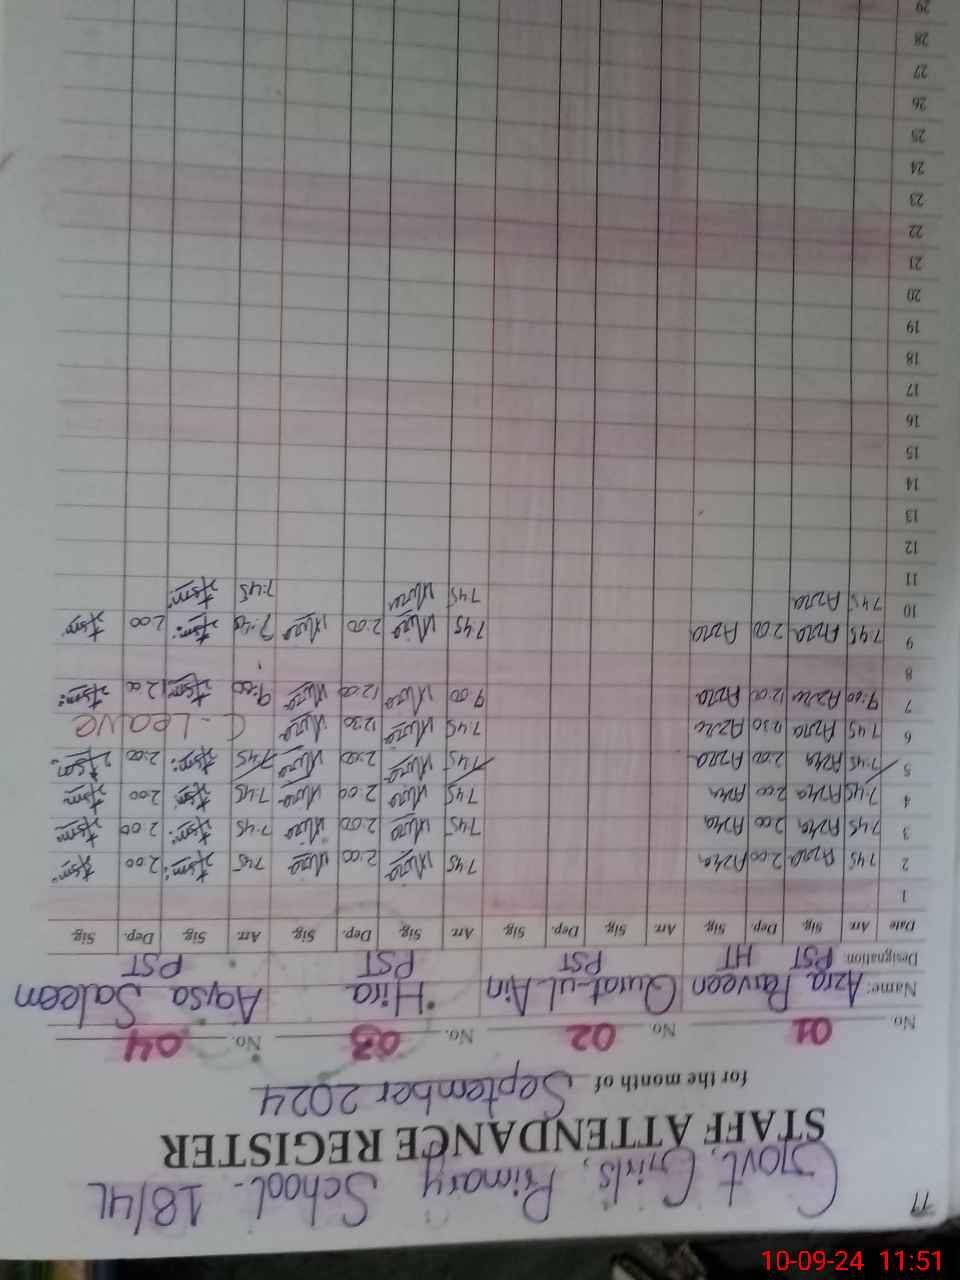 77
Govt. Girls, Primary School - 18/4L
STAFF ATTENDANCE REGISTER
for the month of September 2024
No. 01 No. 02 No. 03 No. 04
Name: Azra Parveen Qurat-ul-Ain Hira Aqsa Saleem
Designation PST HT PST PST PST
Date Arr. Sig. Dep. Sig. Arr. Sig. Dep. Sig. Arr. Sig. Dep. Sig. Arr. Sig. Dep. Sig.
1
2 7:45 Azra 2:00 Azra 7:45 Hira 2:00 Hira 7:45 2:00
3 7:45 Azra 2:00 Azra 7:45 Hira 2:00 Hira 7:45 2:00
4 7:45 Azra 2:00 Azra 7:45 Hira 2:00 Hira 7:45 2:00
5 7:45 Azra 2:00 Azra 7:45 Hira 2:00 Hira 7:45 2:00
6 7:45 Azra 12:30 Azra 7:45 Hira 12:30 Hira C-Leave
7 9:00 Azra 12:00 Azra 9:00 Hira 12:00 Hira 9:00 12:00
8
9 7:45 Azra 2:00 Azra 7:45 Hira 2:00 Hira 7:40 2:00
10 7:45 Azra 7:45 Hira 7:45
11
12
13
14
15
16
17
18
19
20
21
22
23
24
25
26
27
28
29
10-09-24 11:51